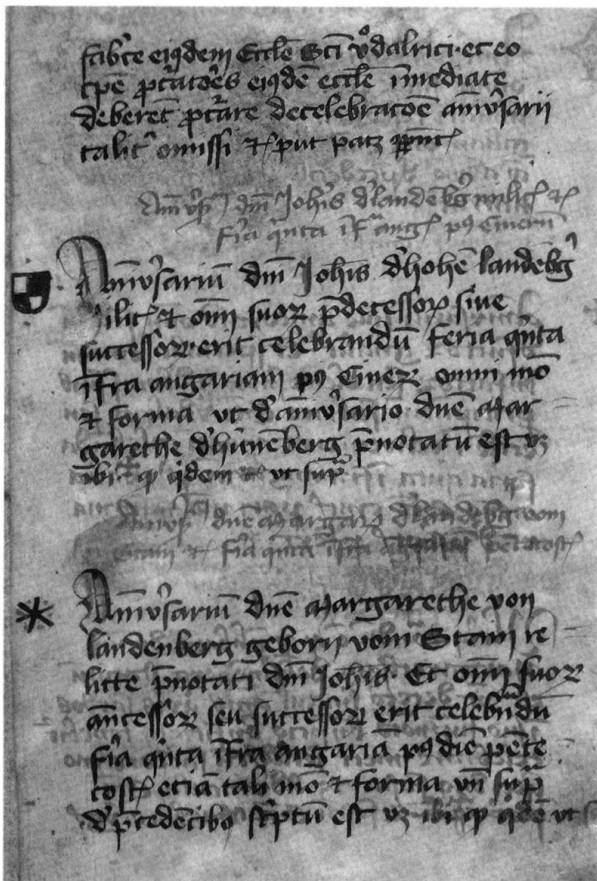 fabͨe eiꝰdem Eccle̅ Sci̅ vͦdalrici · et eo
tp̅e ꝓcͣato̅es eiꝰde̅ eccle̅ i̅mediate
debere̅t ꝓcͣare de celebrato̅e a̅niv̾sarii
talit̾ omissi ⁊ put patz
A̅niv̾ dni̅ Joh̅is d̾ landēbg̾ milit ⁊
fi̅a qi̅nta i̅fra ang pꝰ Cinerū
A̅niv̾sariu̅ dni̅ Joh̅is d̾ hohe̅ landēbg̾
milit ⁊ om̅i suoꝝ p̅decessoꝝ sive
successoꝝ · erit celebrandu̅ feria qi̅nta
i̅fra angariam pꝰ Cineꝝ omni mo̅
⁊ forma vt d̾ a̅niv̾sario dn̅e Mar
garethe d̾ hu̅nēberg p̅notatu̅ est vz
ibi ꝙ qi̅dem ⁊ vt sup̅
A̅niv̾ dn̅e Margar d̾ landēbg vom
Stain ⁊ fi̅a qi̅nta pe̅tecost
A̅niv̾sariu̅ dn̅e Margarethe von
landenberg geborn̅ vom̅ Stain re
licte p̅notati dni̅ Joh̅is · Et om̅i suoꝝ
a̅ntcessoꝝ seu successoꝝ erit celebra̅du̅
fi̅a qi̅nta i̅fra angaria̅ pꝰ die̅ pe̅te
cost etia̅ tali mo̅ ⁊ forma vn̅ sup̅
d̾ p̅cede̅tibꝰ sc̾ptu̅ est vz ibi ꝙ qi̅de̅ vt s